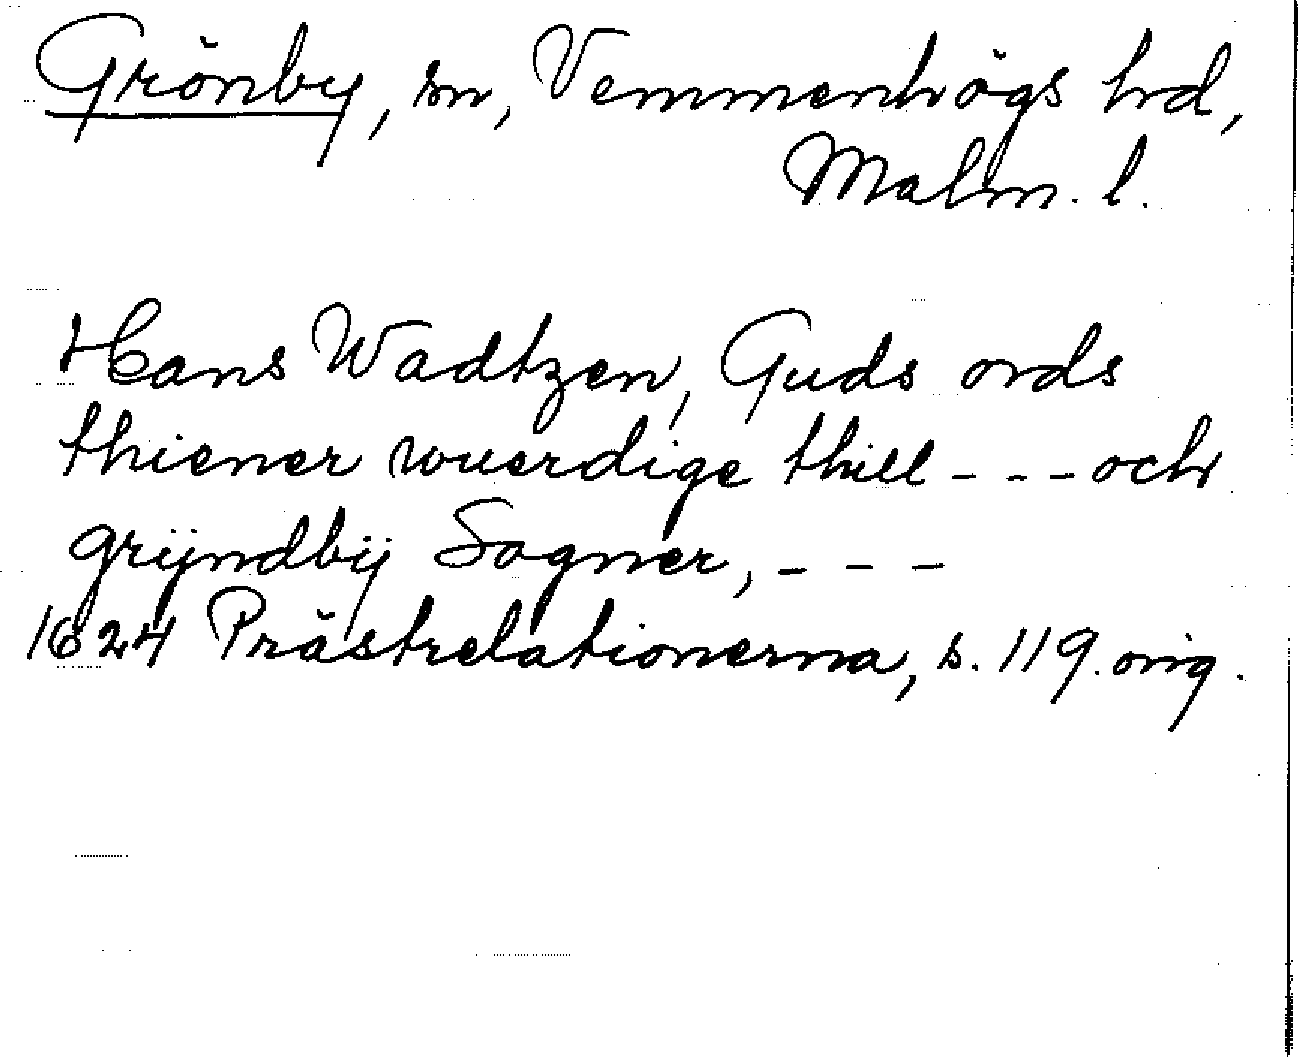 Grönby, sn, Vemmenhögs hd,
Malm. l.
Hans Wadtzen, Guds ords
thiener wuerdige thill - - - och
grÿndbÿ Sogner, - - -
1624 Prästrelationerna, s. 119. orig.